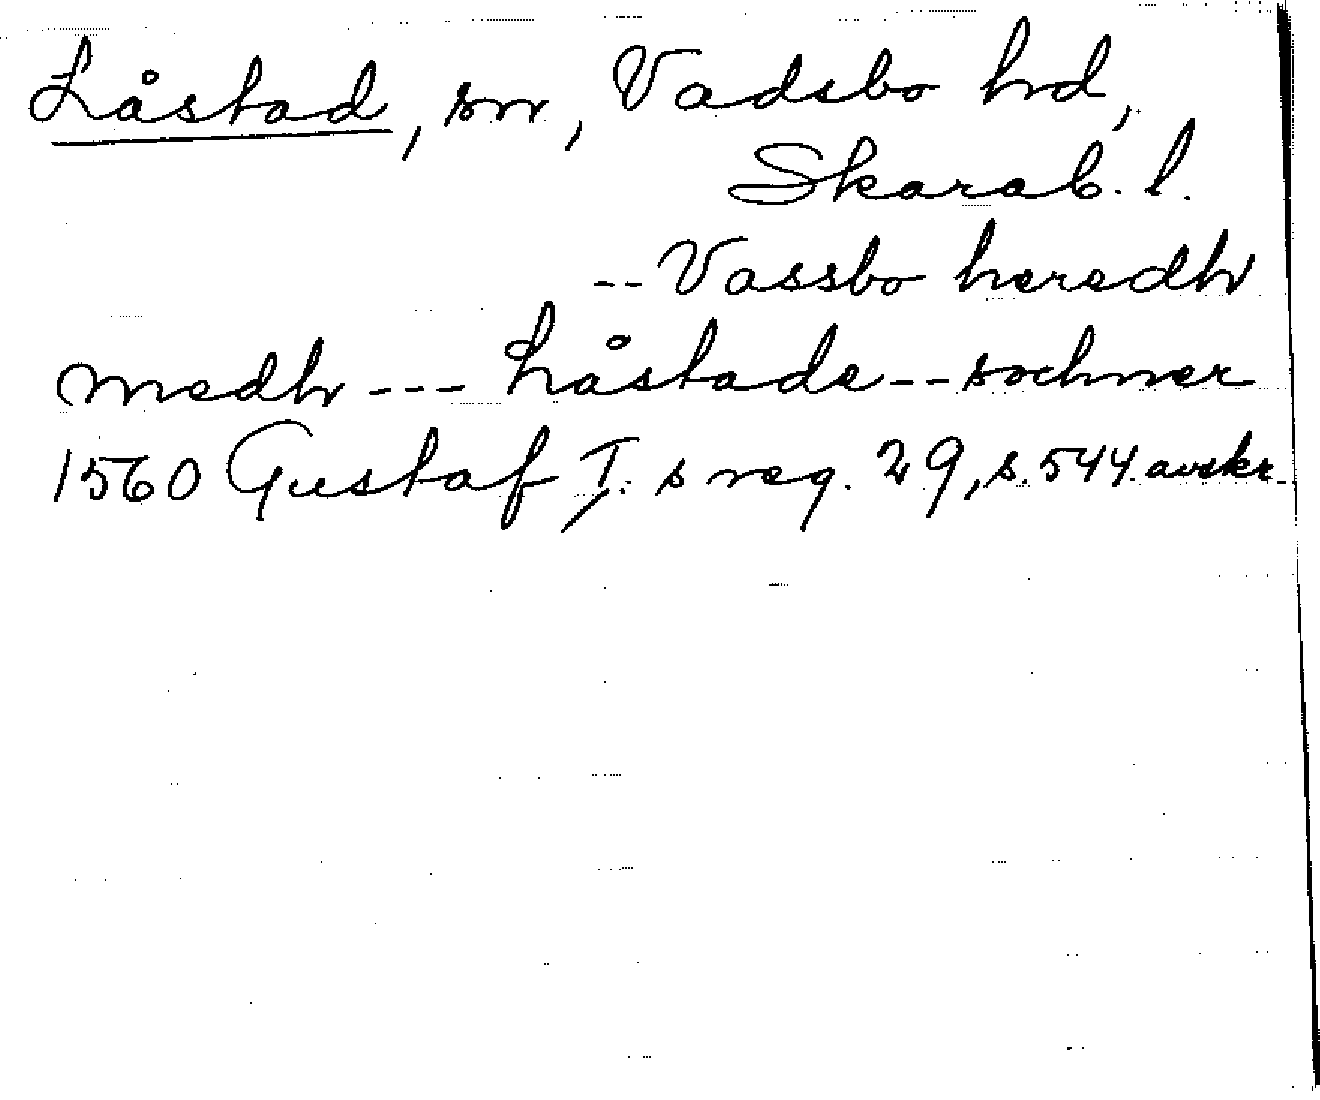 Låstad, sn, Vadsbo hd,
Skarab. l.
-- Vassbo heredh
medh --- Låstade -- sochner
1560 Gustaf I. s reg. 29, s. 544. avskr.